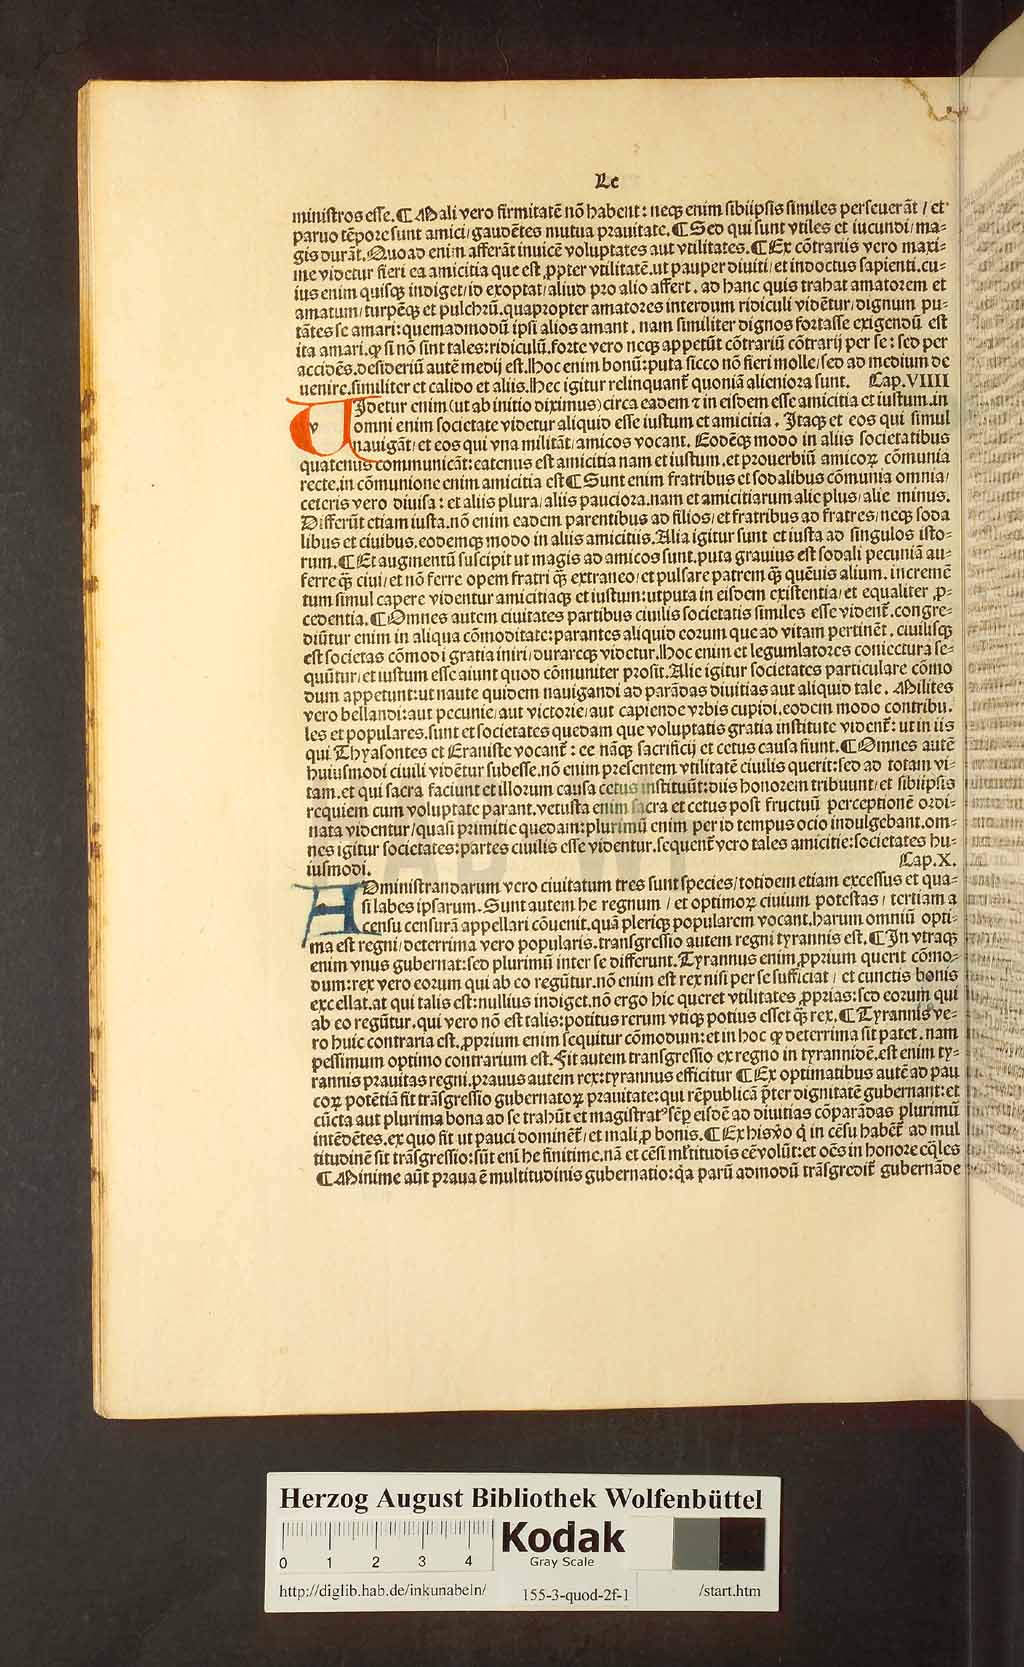 Le
ministros esse.¶Mali vero firmitatē nō habent: neqꝫ enim sibiipsis similes perseuerāt / et
paruo tēpore sunt amici/gaudētes mutua prauitate.¶Sed qui sunt vtiles et iucundi/ma=
gis durāt.Quoad enim afferāt inuicē voluptates aut vtilitates.¶Ex cōtrariis vero maxi=
me videtur fieri ea amicitia que est ꝓpter vtilitatē.ut pauper diuiti/et indoctus sapienti.cu=
ius enim quisqꝫ indiget/id exoptat/aliud pro alio affert. ad hanc quis trahat amatorem et
amatum/turpēqꝫ et pulchrū.quapropter amatores interdum ridiculi vidētur/dignum pu=
tātes se amari:quemadmodū ipsi alios amant. nam similiter dignos fortasse exigendū est
ita amari.ꝙ si nō sint tales:ridiculū.forte vero neqꝫ appetūt cōtrariū cōtrarij per se: sed per
accidēs.desideriū autē medij est.Hoc enim bonū:puta sicco nō fieri molle/sed ad medium de
uenire.similiter et calido et aliis.Hec igitur relinquanť quoniā alieniora sunt. Cap.VIIII
VIdetur enim(ut ab initio diximus)circa eadem ⁊ in eisdem esse amicitia et iustum.in
v omni enim societate videtur aliquid esse iustum et amicitia. Itaqꝫ et eos qui simul
nauigāt/et eos qui vna militāt/amicos vocant. Eodēqꝫ modo in aliis societatibus
quatenus communicāt:eatenus est amicitia nam et iustum.et prouerbiū amicoꝝ cōmunia
recte.in cōmunione enim amicitia est¶Sunt enim fratribus et sodalibus cōmunia omnia/
ceteris vero diuisa: et aliis plura/aliis pauciora.nam et amicitiarum alie plus/alie minus.
Differūt etiam iusta.nō enim eadem parentibus ad filios/et fratribus ad fratres/neqꝫ soda
libus et ciuibus.eodemqꝫ modo in aliis amicitiis.Alia igitur sunt et iusta ad singulos isto=
rum.¶Et augmentū suscipit ut magis ad amicos sunt.puta grauius est sodali pecuniā au=
ferre ꝙ̄ ciui/et nō ferre opem fratri ꝙ̄ extraneo/et pulsare patrem ꝙ̄ quēuis alium. incremē
tum simul capere videntur amicitiaqꝫ et iustum:utputa in eisdem existentia/et equaliter ꝓ=
cedentia.¶Omnes autem ciuitates partibus ciuilis societatis similes esse videnť.congre=
diūtur enim in aliqua cōmoditate:parantes aliquid eorum que ad vitam pertinēt. ciuilisqꝫ
est societas cōmodi gratia iniri/durareqꝫ videtur.Hoc enim et legumlatores coniectura se=
quūtur/et iustum esse aiunt quod cōmuniter prosit.Alie igitur societates particulare cōmo
dum appetunt:ut naute quidem nauigandi ad parādas diuitias aut aliquid tale. Milites
vero bellandi:aut pecunie/aut victorie/aut capiende vrbis cupidi.eodem modo contribu.
les et populares.sunt et societates quedam que voluptatis gratia institute videnť: ut in iis
qui Thyasontes et Eraniste vocanť: ee nāqꝫ sacrificij et cetus causa fiunt.¶Omnes autē
huiusmodi ciuili vidētur subesse.nō enim presentem vtilitatē ciuilis querit:sed ad totam vi=
tam.et qui sacra faciunt et illorum causa cetus instituūt:diis honorem tribuunt/et sibiipsis
requiem cum voluptate parant.vetusta enim sacra et cetus post fructuū perceptionē ordi=
nata videntur/quasi primitie quedam:plurimū enim per id tempus ocio indulgebant.om=
nes igitur societates:partes ciuilis esse videntur.sequenť vero tales amicitie:societates hu=
iusmodi. Cap.X.
ADministrandarum vero ciuitatum tres sunt species/totidem etiam excessus et qua=
si labes ipsarum.Sunt autem he regnum / et optimoꝝ ciuium potestas / tertiam a
censu censurā appellari cōuenit.quā pleriqꝫ popularem vocant.harum omniū opti=
ma est regni/deterrima vero popularis.transgressio autem regni tyrannis est.¶In vtraqꝫ
enim vnus gubernat:sed plurimū inter se differunt.Tyrannus enim ꝓprium querit cōmo=
dum:rex vero eorum qui ab eo regūtur.nō enim est rex nisi per se sufficiat / et cunctis bonis
excellat.at qui talis est:nullius indiget.nō ergo hic queret vtilitates ꝓprias:sed eorum qui
ab eo regūtur.qui vero nō est talis:potitus rerum vtiqꝫ potius esset ꝙ̄ rex.¶Tyrannis ve=
ro huic contraria est.ꝓprium enim sequitur cōmodum:et in hoc ꝙ deterrima sit patet. nam
pessimum optimo contrarium est.Fit autem transgressio ex regno in tyrannidē.est enim ty=
rannis prauitas regni.prauus autem rex:tyrannus efficitur ¶Ex optimatibus autē ad pau
coꝝ potētiā fit trāsgressio gubernatoꝝ prauitate:qui rēpublicā p̄ter dignitatē gubernant:et
cūcta aut plurima bona ad se trahūt et magistratꝰ sēꝑ eisdē ad diuitias cōparādas plurimū
intēdētes.ex quo fit ut pauci dominēť/et mali ꝓ bonis.¶Ex his v̄o q̄ in cēsu habēť ad mul
titudinē fit trāsgressio:sūt eni he finitime.nā et cēsi ml̄titudīs cē volūt:et oēs in honore eq̄les
¶Minime aūt praua ē multitudinis gubernatio:q̄a parū admodū trāsgrediť gubernāde
Herzog August Bibliothek Wolfenbüttel
0 1 2 3 4
Kodak
Gray Scale
http://diglib.hab.de/inkunabeln/ 155-3-quod-2f-1 /start.htm